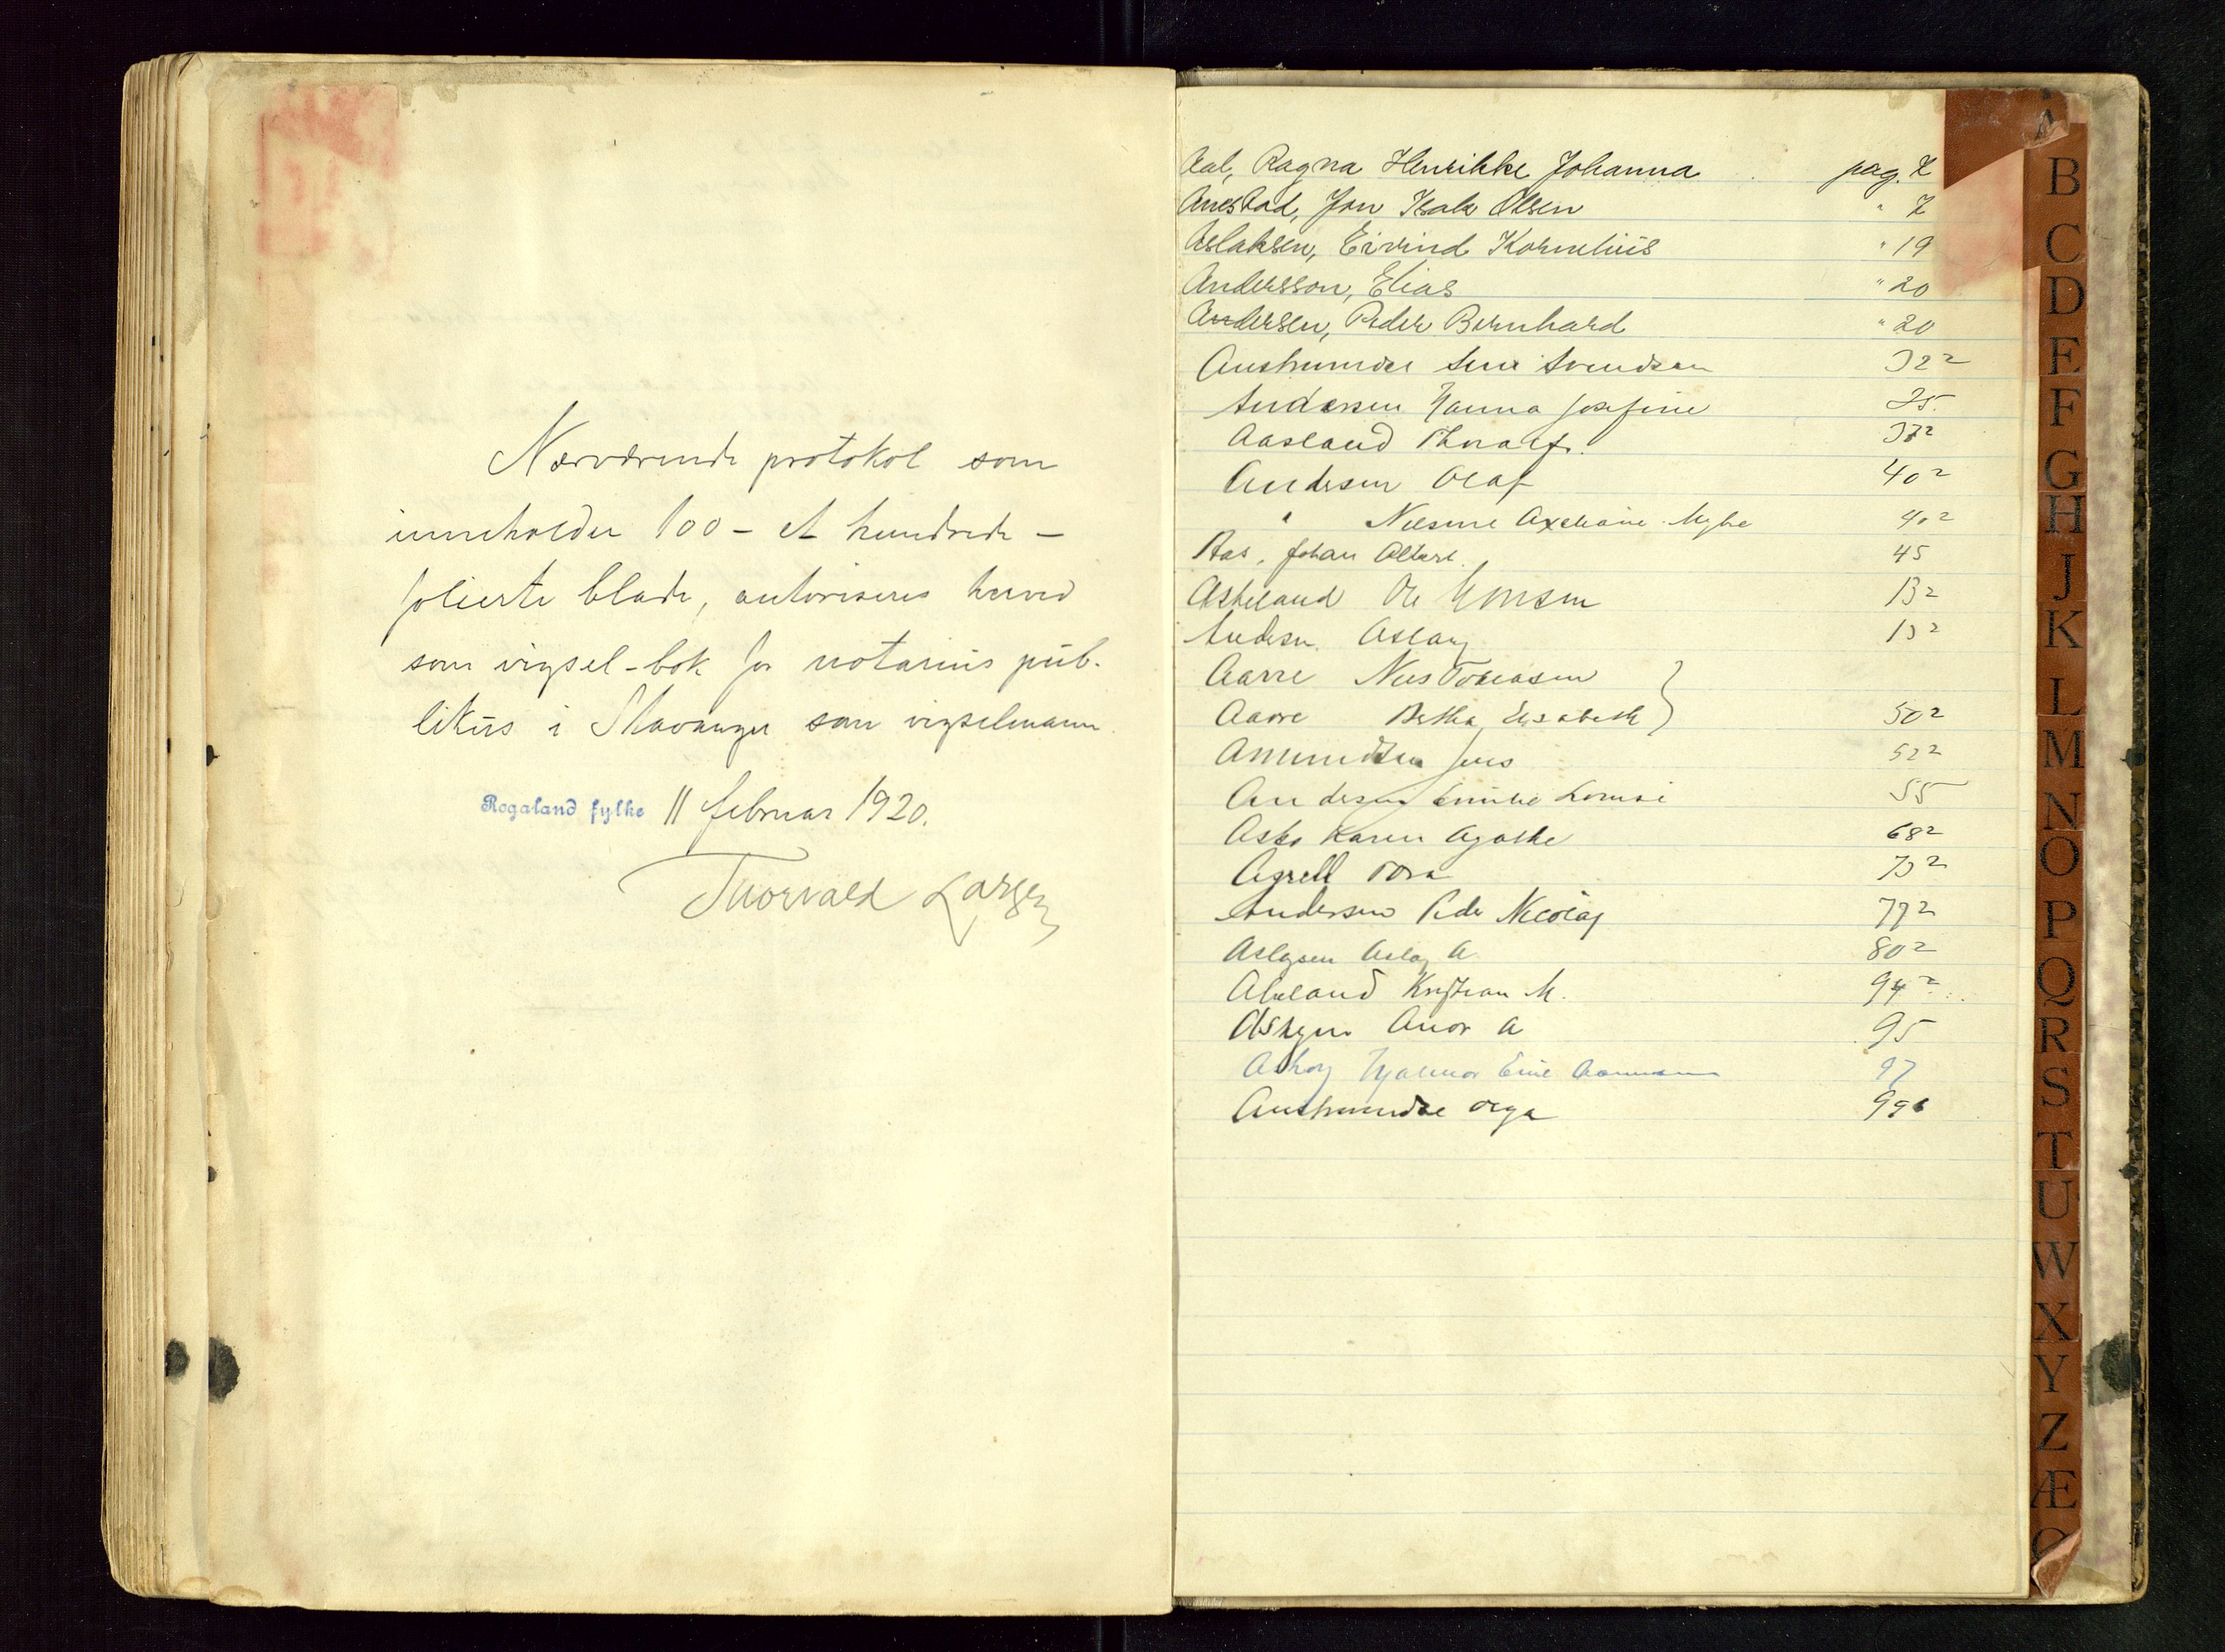 Nærværende protokol som
inneholder 100 - et hundrede -
folierte blade, autoriseres herved
som vigsel-bok for notarius pub-
likus i Stavanger som vigselmann.
Rogaland fylke 11 februar 1920.
Thorvald Larsen
Aal, Ragna Henrikke Johanna pag. 7
Anestad, Jon Isak Olsen " 7
Aslaksen, Eivind Kornelius " 19
Andersson, Elias " 20
Andersen, Peder Bernhard " 20
Austrumdal Svendsen 32²
Andersen Hanna Josefine 35
Aasland Thoralf 37²
Andersen Olaf 40²
" Nilsine 40²
Aas, Johan Albert 45
Askeland Ole 13²
Andersen Aslaug 13²
Aarre Nils Tobiasen
Aarre Bertha Elisabeth } 50²
Amundsen Jens 52²
Andersen Emilie Lovise 55
Asbo Karen Agathe 68²
Agrell Tora 73²
Andersen Peder Nicolay 77²
Aslagsen Aslag A. 80²
Abeland Kristian M. 94²
Anor A 95
Hjalmar Emil 97
Austrumdal Olga 99
A
B
C
D
E
F
G
H
J
K
L
M
N
O
P
Q
R
S
T
U
W
X
Y
Z
Æ